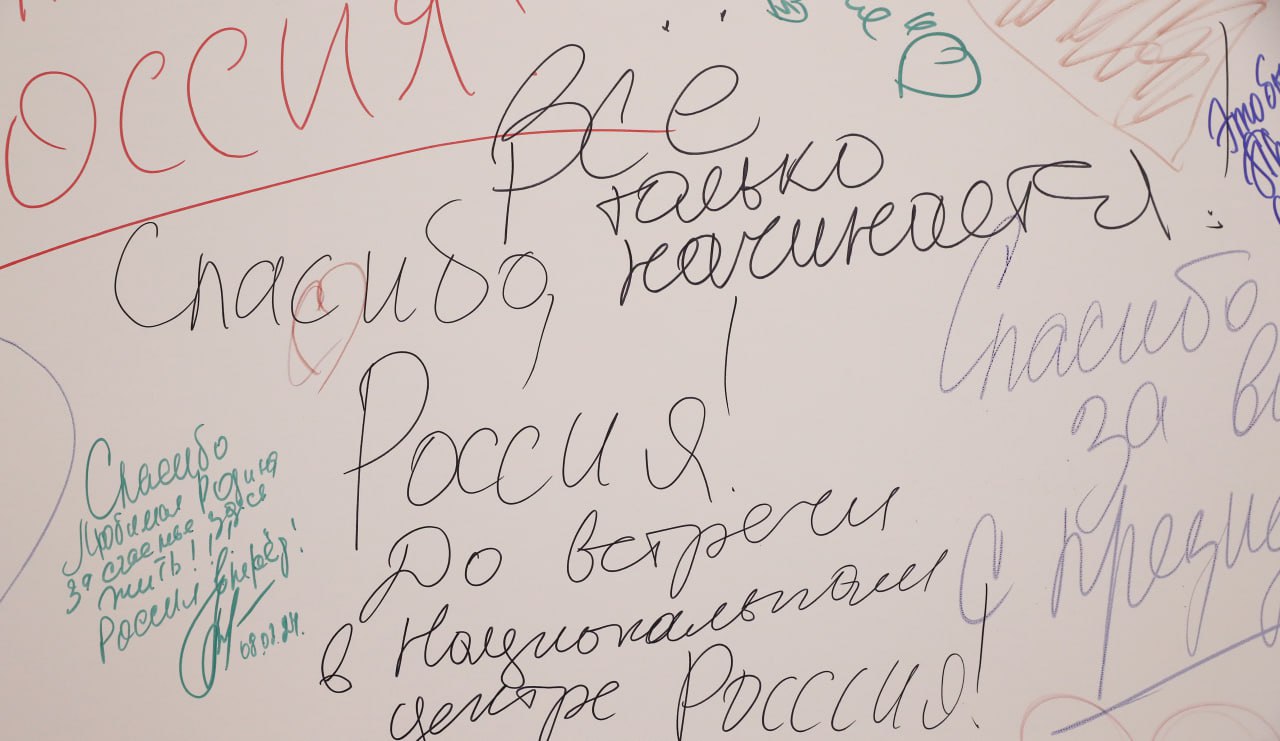 ОССИЯ
Всё
только
начинается!
Спасибо,
Россия!
До встречи
в Национальном
центре Росссия!
Спасибо
Любимая Родина
за счастье здесь
жить!!!
Россия вперёд!
08.07.24.
Спасибо
за
С
Это